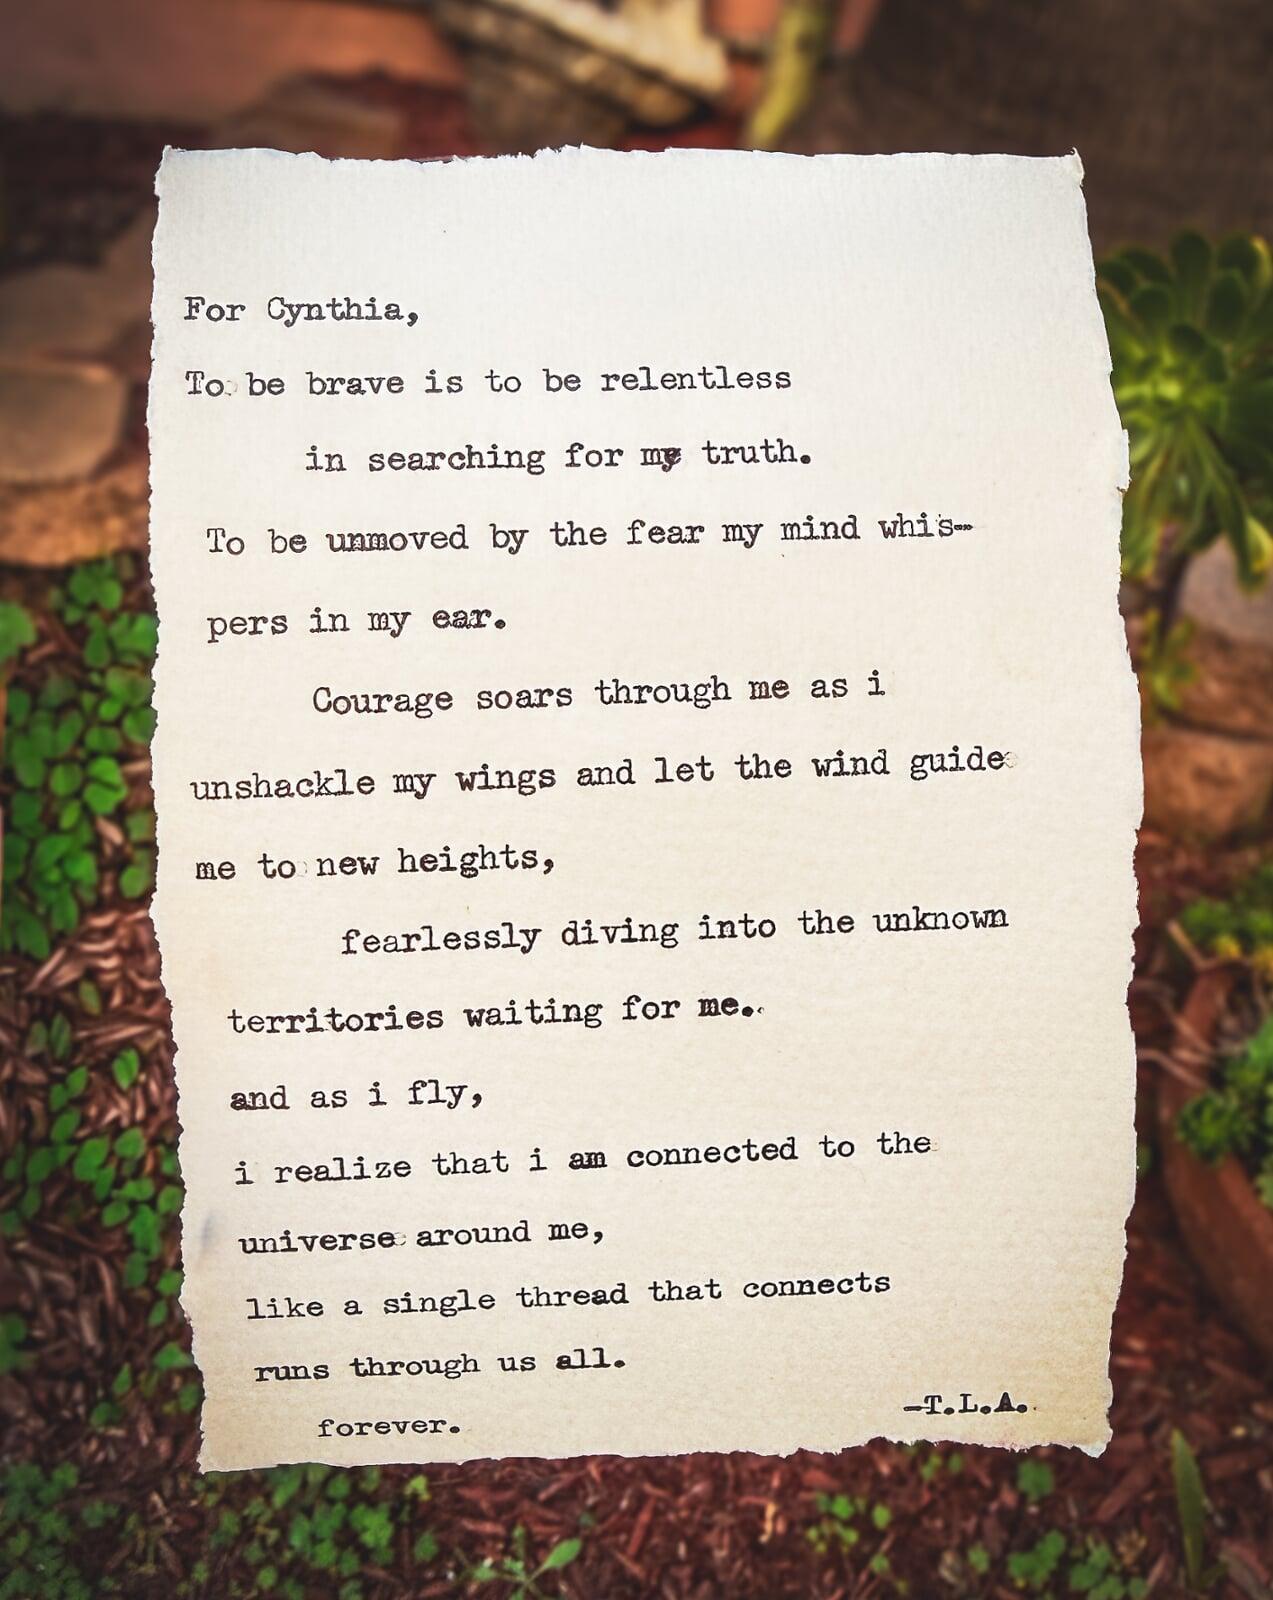 For Cynthia,
To be brave is to be relentless
in searching for my truth.
To be unmoved by the fear my mind whis-
pers in my ear.
Courage soars through me as i
unshackle my wings and let the wind guide
me to new heights,
fearlessly diving into the unknown
territories waiting for me.
and as i fly,
i realize that i am connected to the
universe around me,
like a single thread that connects
runs through us all.
forever.
-T.L.A.